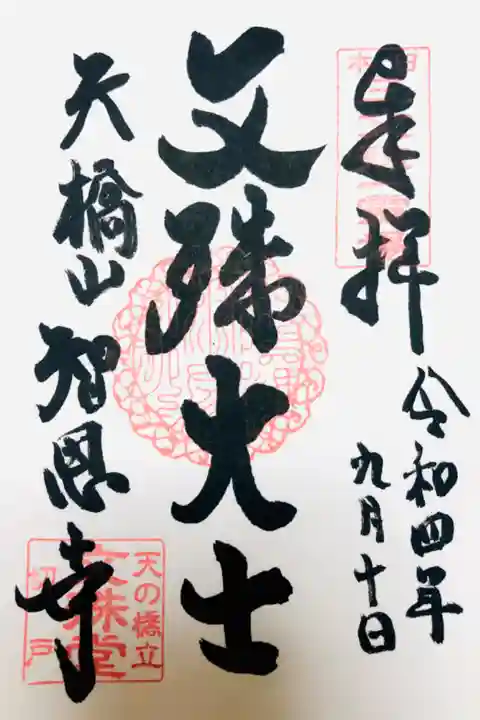 奉拝
令和四年
九月十日
文殊大士
天橋山 智恩寺
天の橋立
文殊堂
切戸